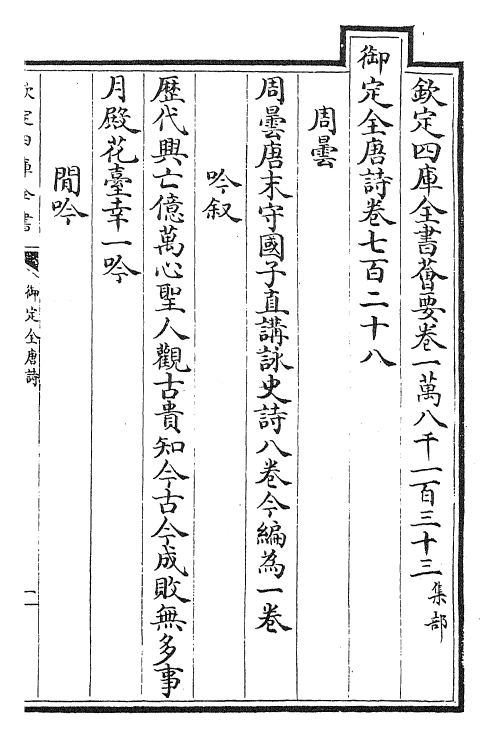 欽定四庫全書薈要卷一萬八千一百三十三集部
御定全唐詩卷七百二十八
周曇
周曇唐末守國子直講詠史詩八卷今編為一卷
吟叙
歷代興亡億萬心聖人觀古貴知今古今成敗無多事
月殿花臺幸一吟
閒吟
欽定四庫全書
御定全唐詩